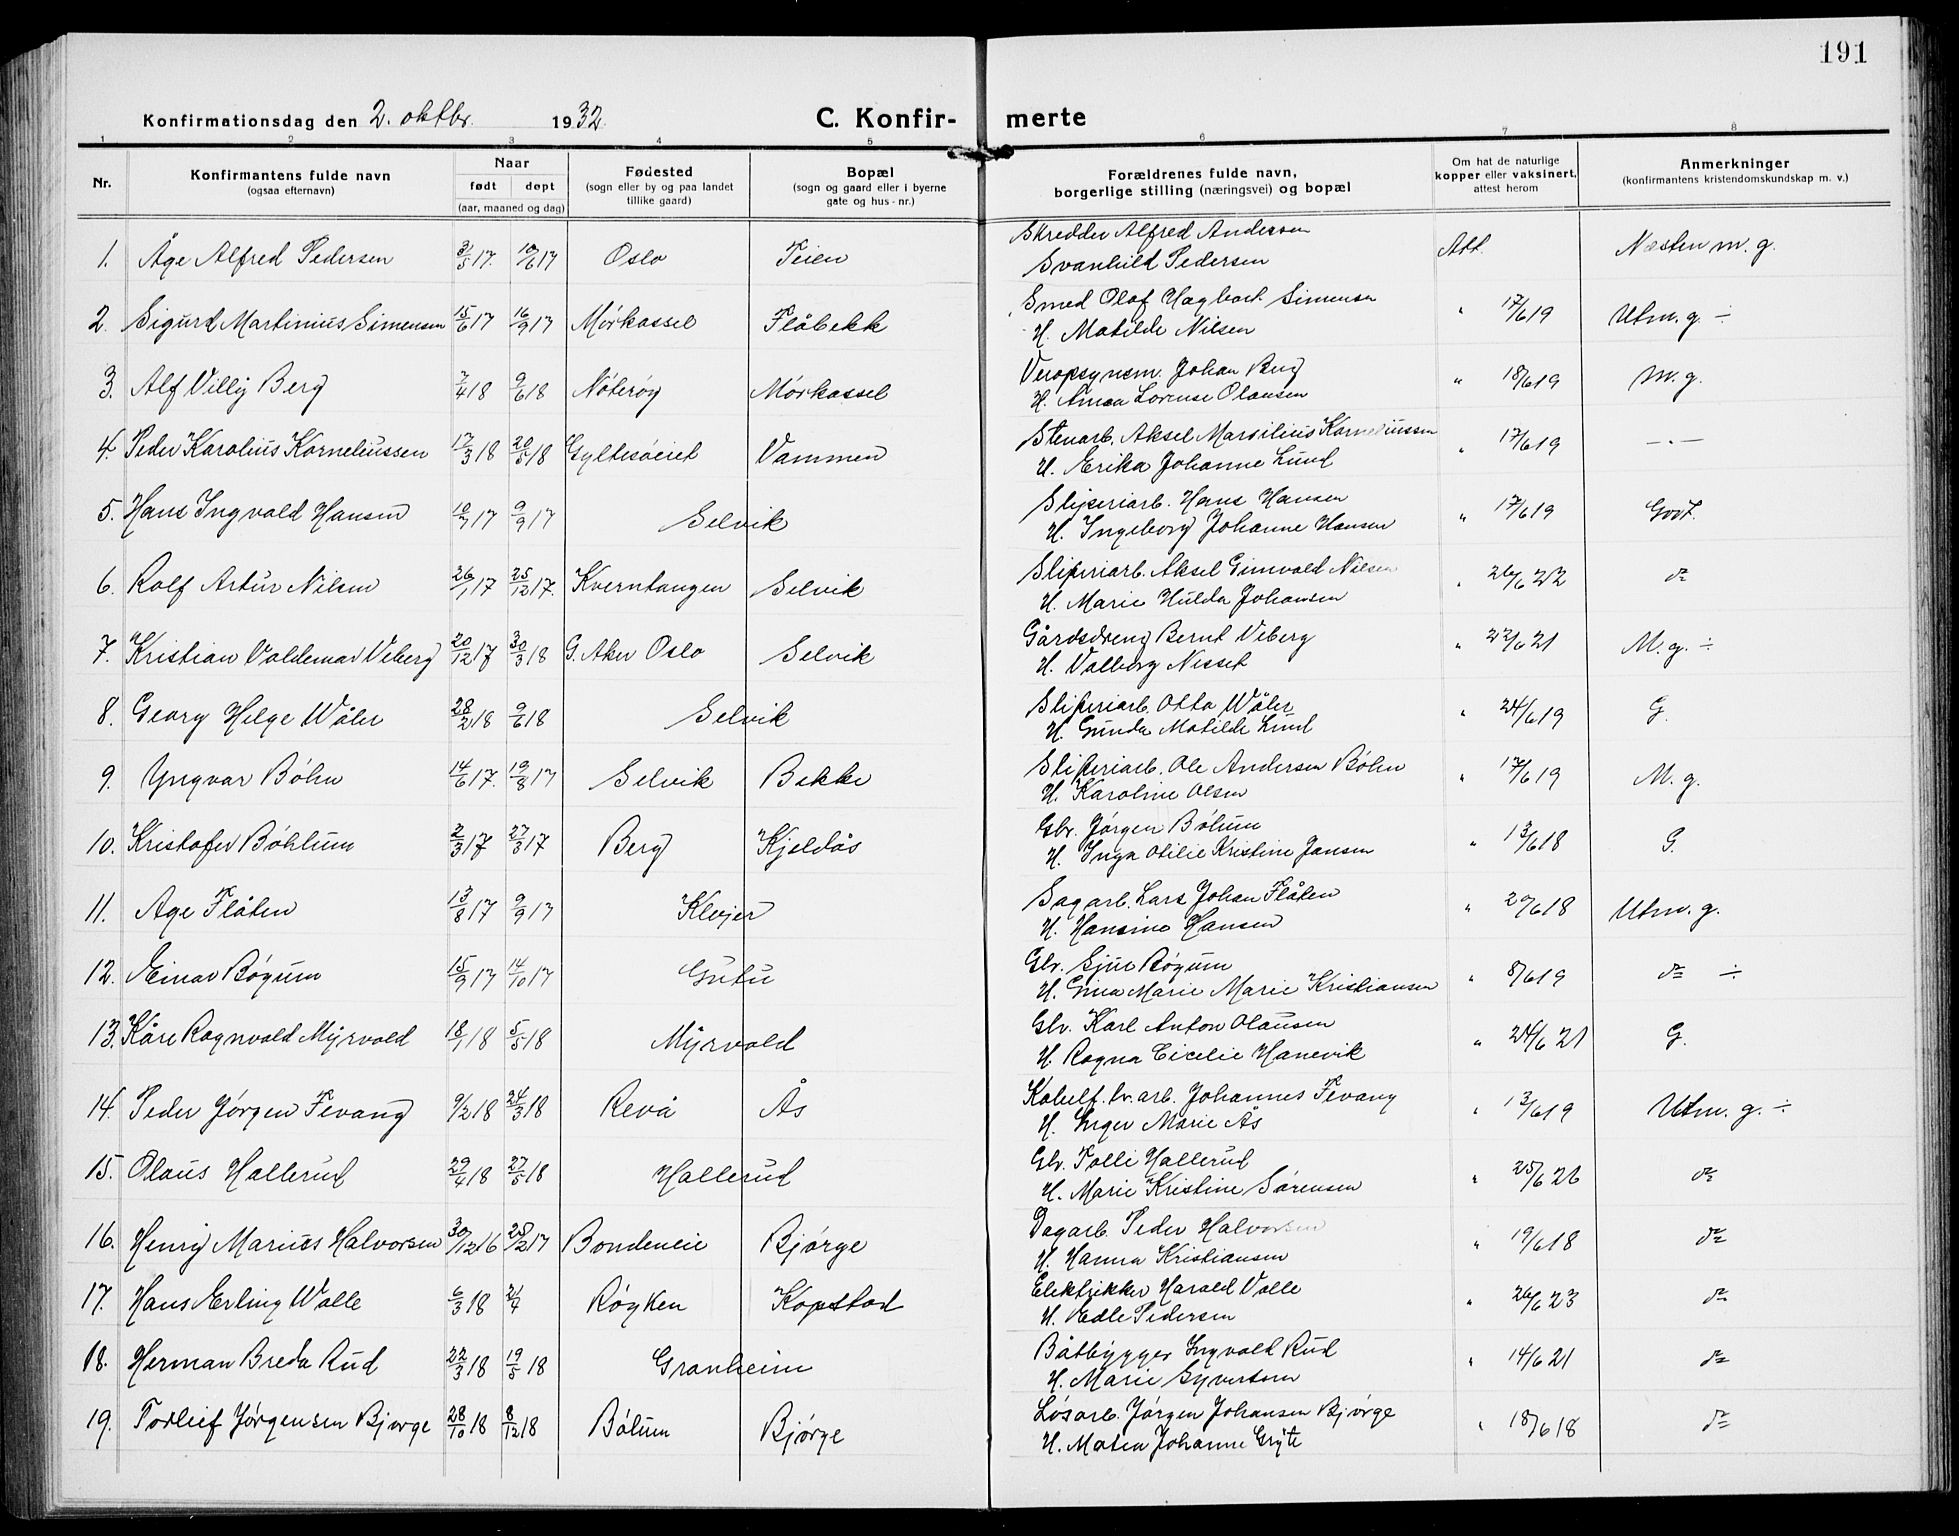 191
Konfirmationsdag den 2. oktbr. 1932.
C. Konfir- merte
1 2 3 4 5 6 7 8
Nr. Konfirmantens fulde navn (ogsaa efternavn) Naar født døpt (aar, maaned og dag) Fødested (sogn eller by og paa landet tillike gaard) Bopæl (sogn og gaard eller i byerne gate og hus-nr.) Forældrenes fulde navn, borgerlige stilling (næringsvei) og bopæl Om hat de naturlige kopper eller vaksinert, attest herom Anmerkninger (konfirmantens kristendomskundskap m. v.)
1. Åge Alfred Pedersen 3/5 17. 10/6 17 Oslo Teien Skredder Alfred Andersen Att. Næsten m. g.
Svanhild Pedersen
2. Sigurd Martinius Simensen 15/6 17 16/9 17 Mørkassel Flåbekk Smed Olaf Hagbart Simensen " 17/6 19 Utm. g. ÷
H. Matilde Nilsen
3. Alf Villy Berg 7/4 18 9/6 18 Nøterøy Mørkassel Veiopsynsm. Johan Berg " 18/6 19 M. g.
H. Anna Lovense Olausen
4. Peder Karolius Korneliussen 17/3 18 20/5 18 Gyltesøeiet Vammen Stenarb. Aksel Marsilius Korneliussen " 17/6 19 — . —
H. Erika Johanne Lund
5. Hans Ingvald Hansen 10/7 17 9/9 17 Selvik Sliperiarb. Hans Hansen " 17/6 19 Godt.
H. Ingeborg Johanne Hansen
6. Rolf Artur Nilsen 26/1 17 25/12 17. Kverntangen Selvik Sliperiarb. Aksel Gimvald Nilsen " 26/6 22 do
H. Marie Hulda Johansen
7. Kristian Valdemar Viberg 20/12 17 30/3 18 G. Aker Oslo Selvik Gårdsdreng Bernt Viberg " 22/6 21 M. g. ÷
H. Valborg Nesset
8. Georg Helge Wåler 28/2 18 9/6 18 Selvik Sliperiarb. Otto Wåler " 24/6 19 G.
H. Gunda Matilde Lund
9. Yngvar Bøhn 14/6 17. 19/8 17 Selvik Bekke Sliperiarb. Ole Andersen Bøhn " 17/6 19 M. g.
H. Karoline Olsen
10. Kristofer Bøhlum 2/3 17 27/3 17 Berg Kjeldås Gbr. Jørgen Bølum " 13/6 18 G.
H. Inga Otilie Kristine Jansen
11. Age Flåten 13/8 17 9/9 17 Klejver Sagarb. Lars Johan Flåten " 20/6 18 Utm. g.
H. Hansine Hansen
12. Einar Bøgum 15/9 17 14/10 17 Gutu Gbr. Sjul Bøgum " 8/6 19 do ÷
H. Gina Marie Marie Kristiansen
13. Kåre Ragnvald Myrvold 18/1 18 5/5 18 Myrvold Gbr. Karl Anton Olausen " 24/6 21 G.
H. Ragna Cicelie Hanevik
14. Peder Jørgen Fevang 9/2 18 24/3 18 Revå Ås Johannes Fevang " 13/6 19 Utm. g. ÷
H. Inger Marie Ås
15. Olaus Hallerud 29/4 18 27/5 18 Hallerud Gbr. Tolli Hallerud " 25/6 26 do
H. Marie Kristine Sørensen
16. Henry Marius Halvorsen 30/12 16 25/2 17 Bondeneie Bjørge Dagarb. Peder Halvorsen " 19/6 18 do
H. Hanna Kristiansen
17. Hans Erling Walle 6/3 18 21/4 Røyken Kopstad Elektrikker Harald Valle " 26/6 23 do
H. Edle Pedersen
18. Herman Breda Rud 22/3 18 19/5 18 Granheim Båtbygger Ingvald Rud " 14/6 21 do
H. Marie Syvertsen
19. Torlief Jørgensen Bjørge 28/10 18 8/12 18 Bølum Bjørge Løsarb. Jørgen Johansen Bjørge " 18/6 18 do
H. Matea Johanne Gryte